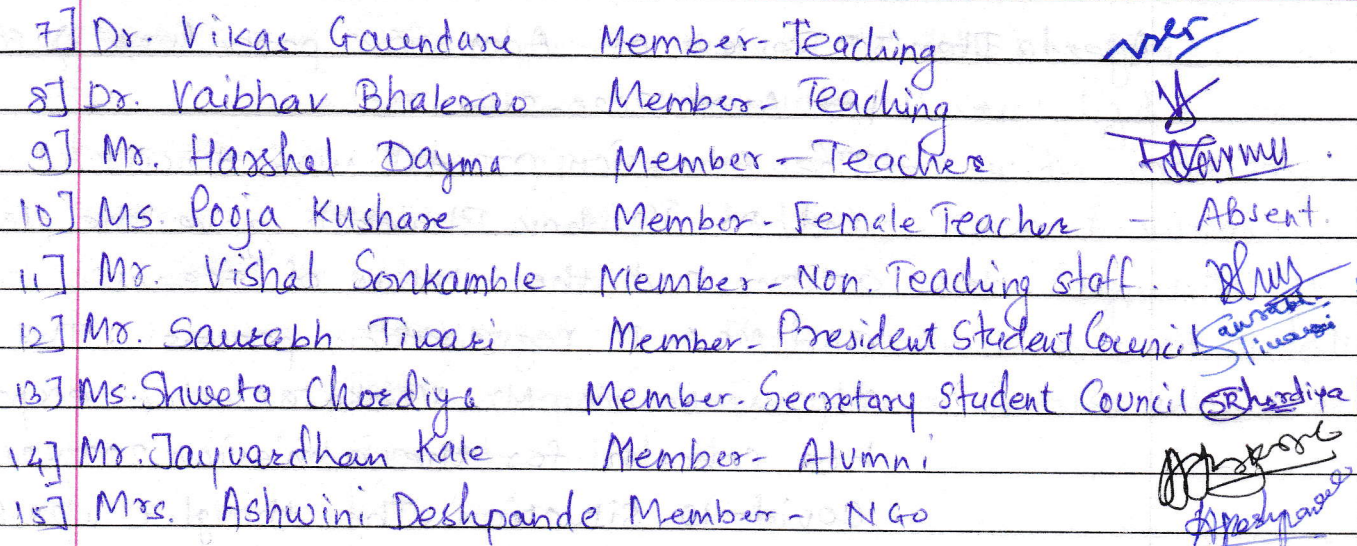 7] Dr. Vikas Gaundare Member-Teaching
8] Dr. Vaibhav Bhalerao Member- Teaching
9] Mr. Harshal Dayma Member - Teacher
10] Ms. Pooja Kushare Member- Female Teacher - Absent.
11] Mr. Vishal Sonkamble Member - Non. Teaching staff.
12] Mr. Saurabh Tiwari Member- President Student Council Saurabh Tiwari
13] Ms. Shweta Chordiya Member- Secretary Student Council SRChordiya
14] Mr. Jayvardhan Kale Member- Alumni
15] Mrs. Ashwini Deshpande Member - NGO ADeshpande